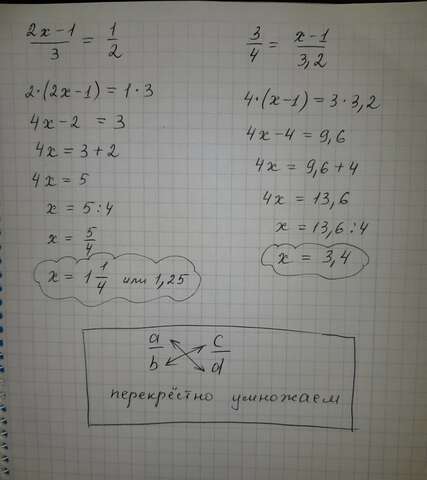 (2x-1)/3 = 1/2
2·(2x-1) = 1·3
4x-2 = 3
4x = 3+2
4x = 5
x = 5:4
x = 5/4
x = 1 1/4 или 1,25
3/4 = (x-1)/3,2
4·(x-1) = 3·3,2
4x-4 = 9,6
4x = 9,6+4
4x = 13,6
x = 13,6:4
x = 3,4
a/b c/d
перекрёстно умножаем